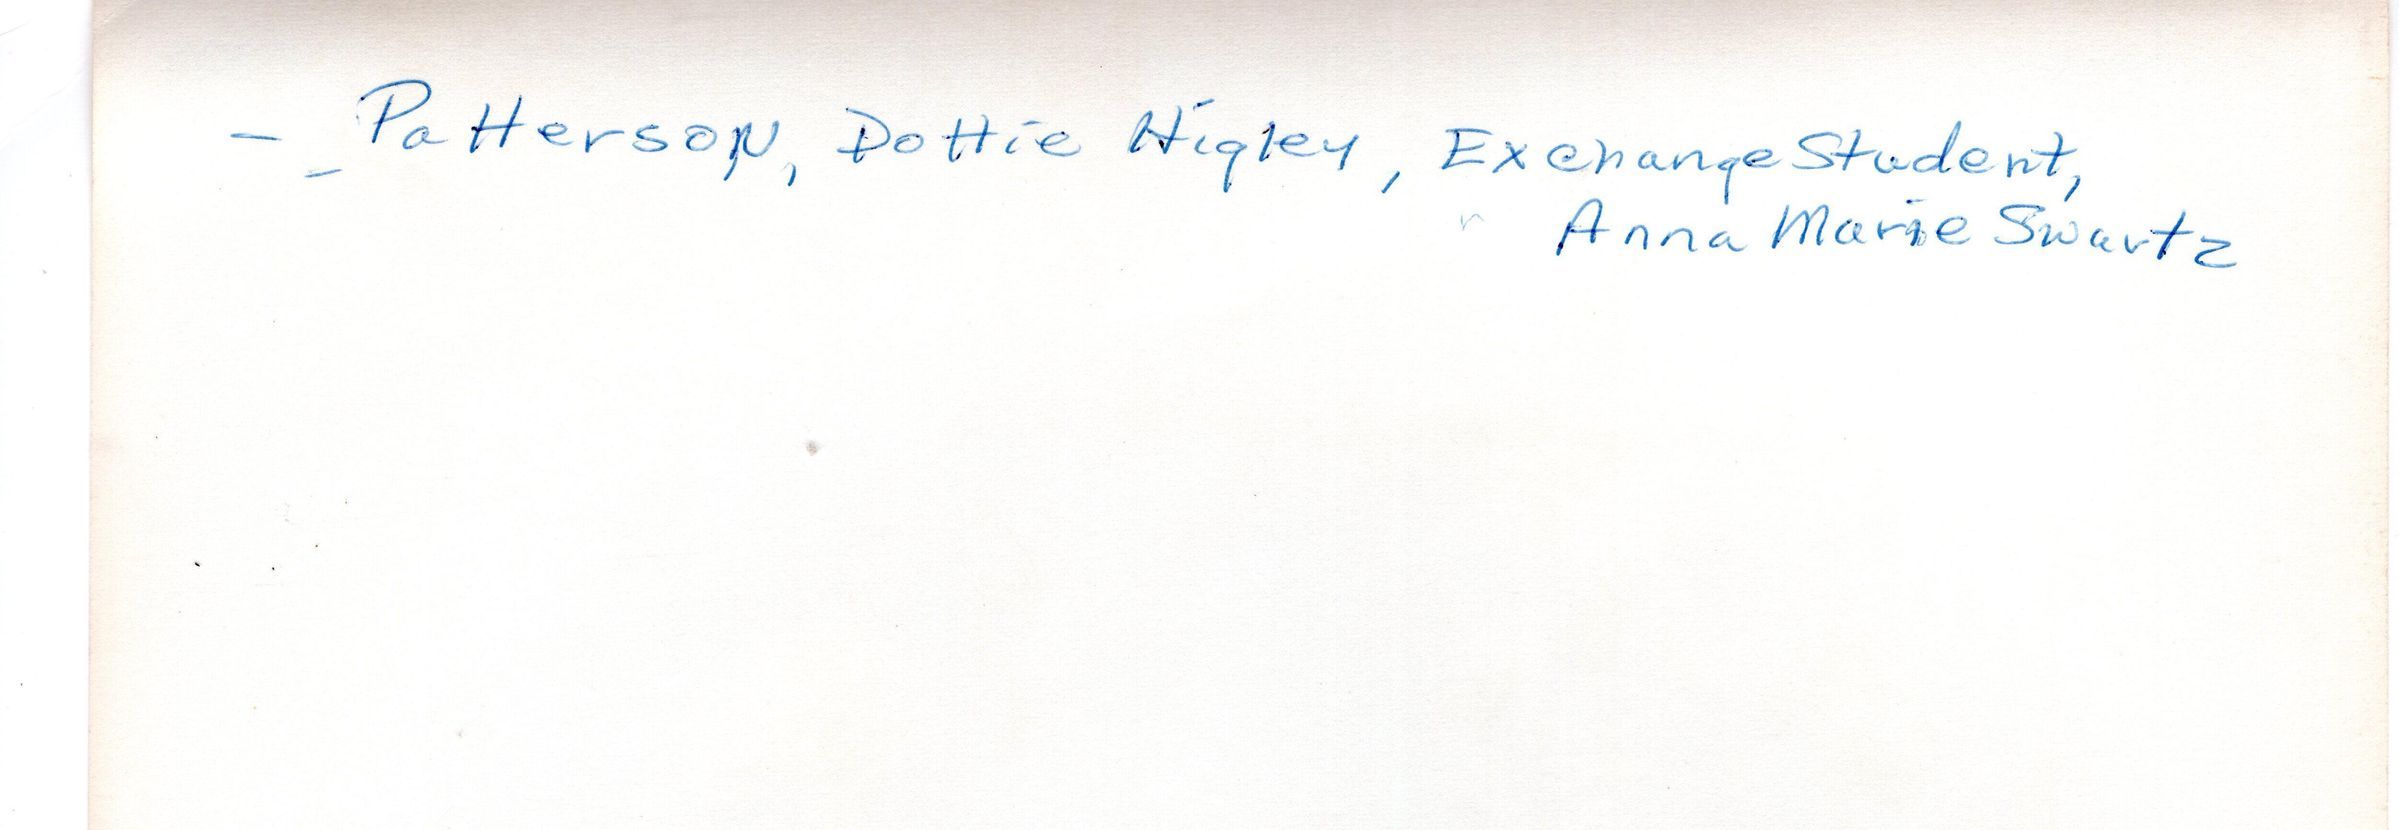 - _ Patterson, Dottie Higley, Exchange Student,
Anna Marie Swartz